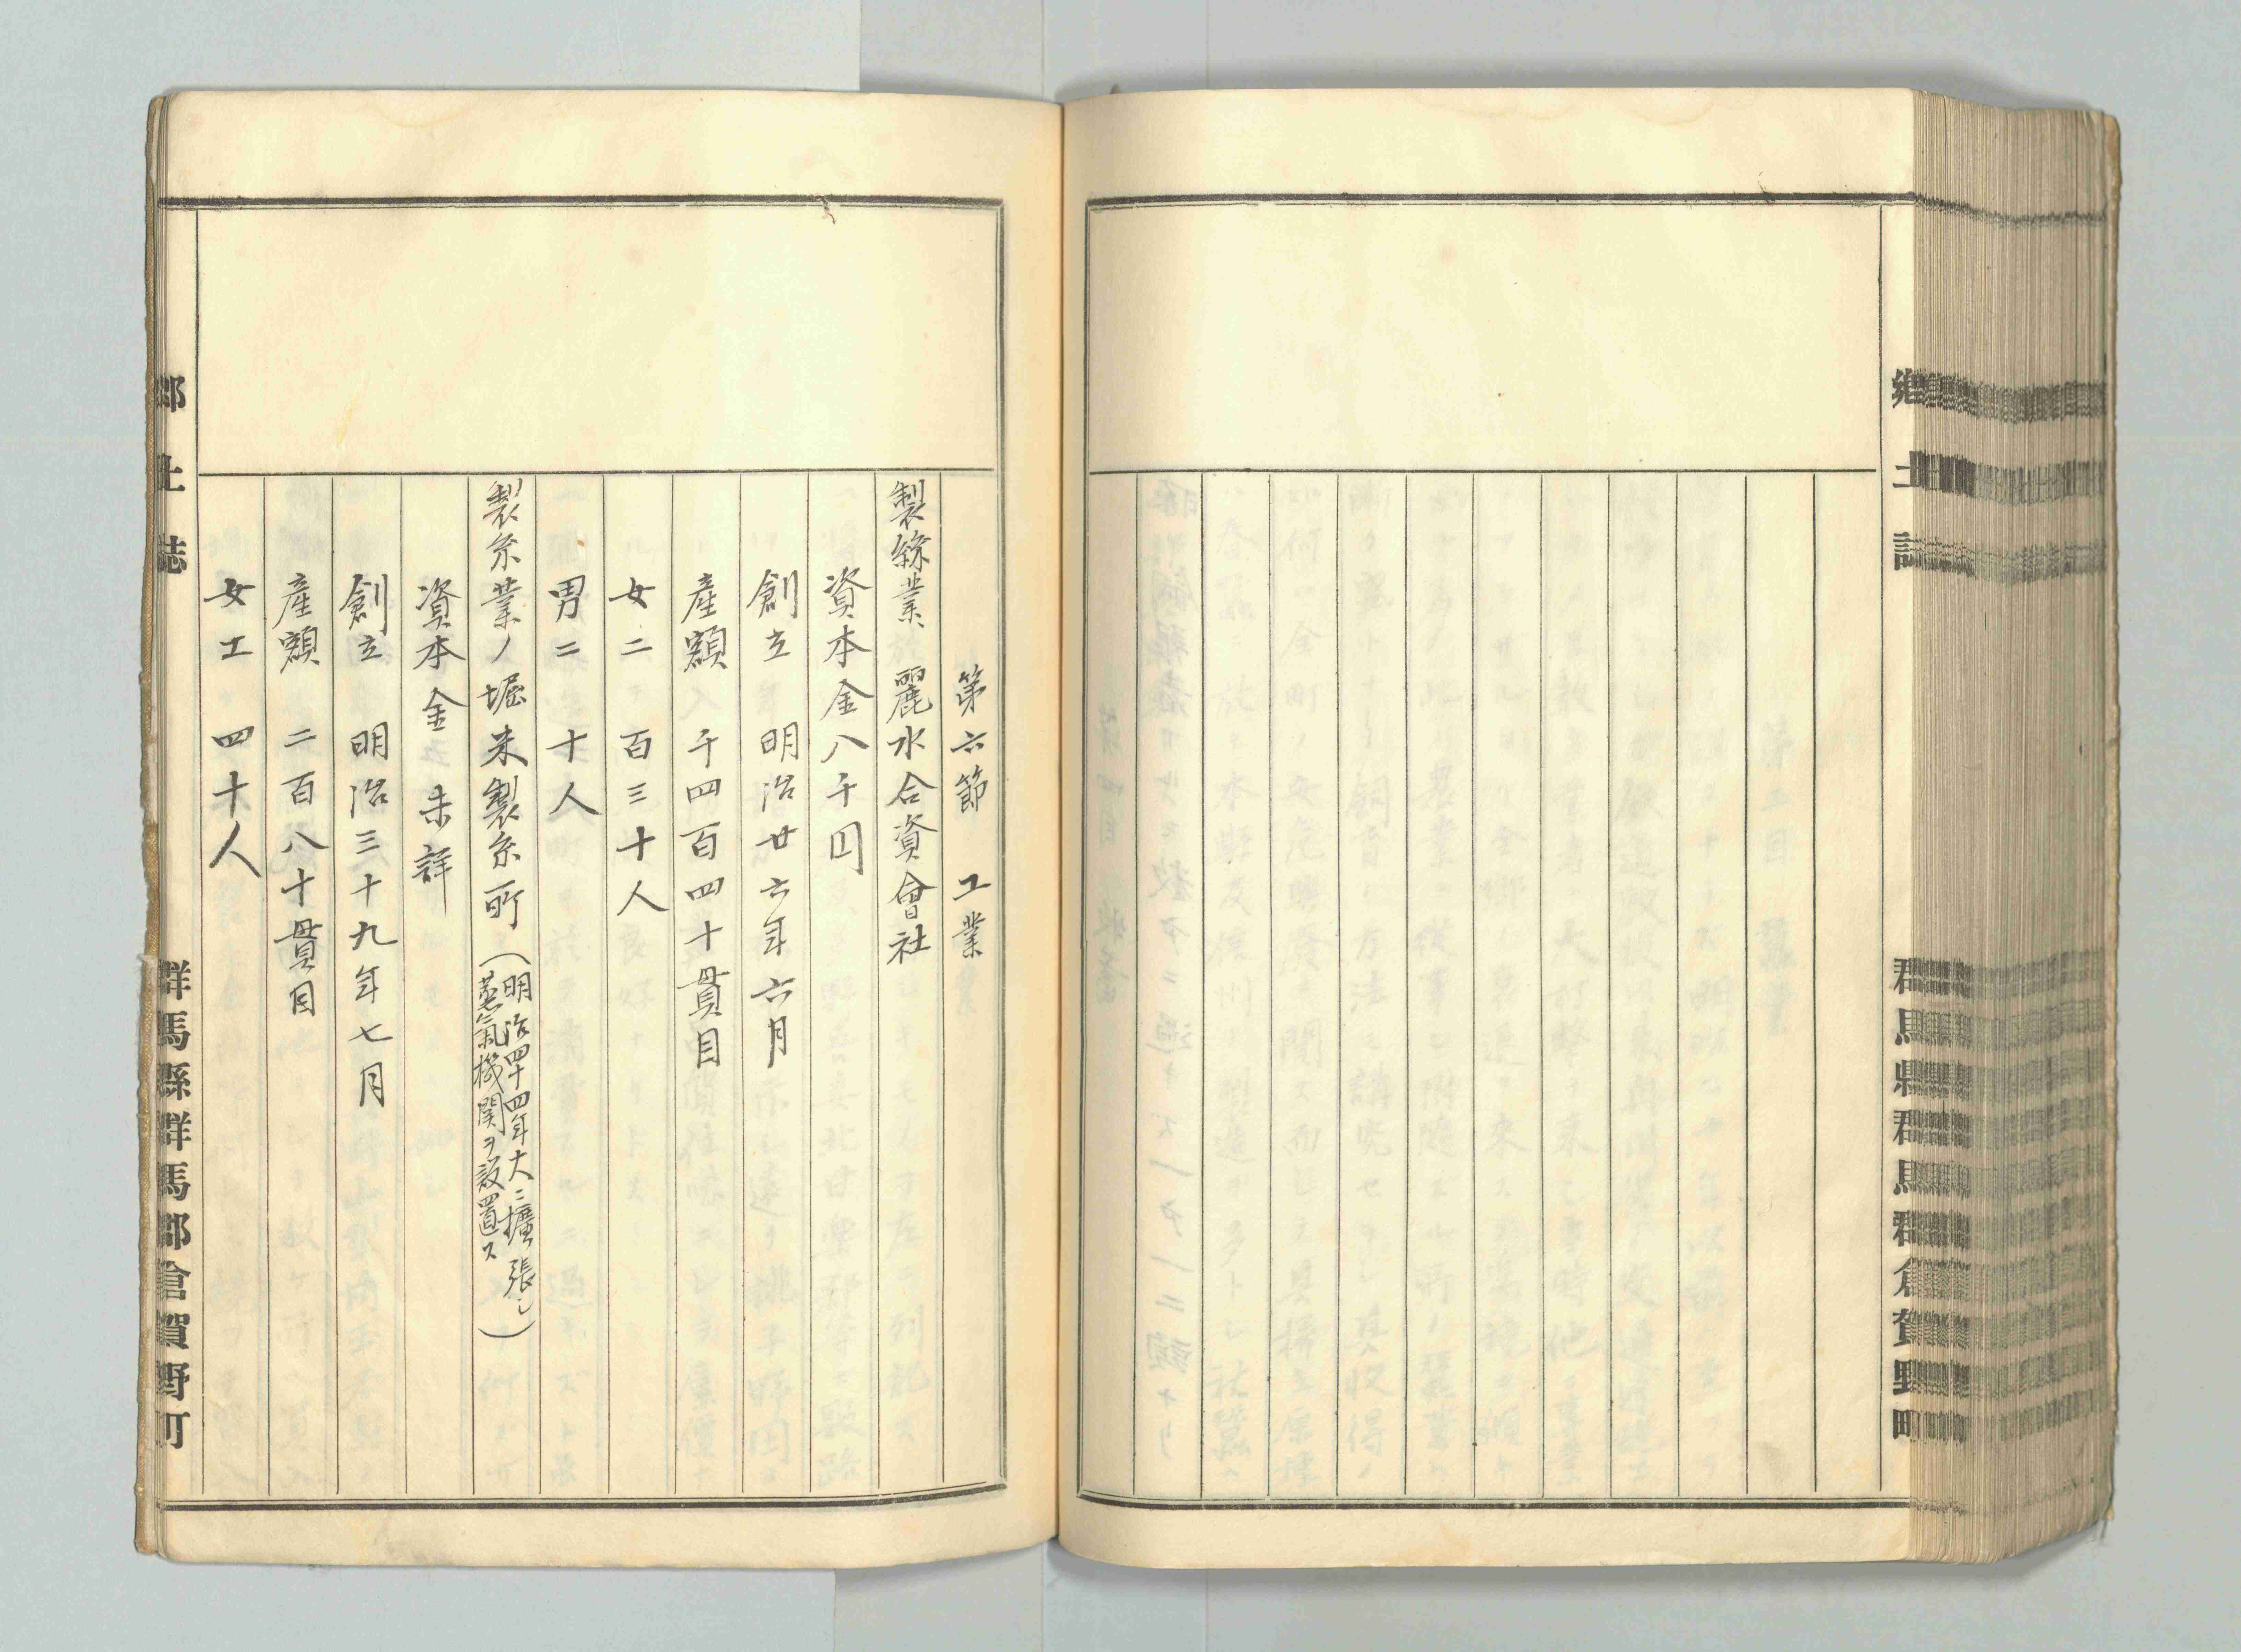 郷土誌
群馬縣群馬郡倉賀野町
第六節　工業
製絲業　麗水合資會社
資本金八千円
創立　明治廿六年六月
産額　千四百四十貫目
女二百三十人
男二十人
製糸業ノ堀米製糸所（明治四十四年大ニ擴張シ
蒸氣機関ヲ設置ス）
資本金未詳
創立　明治三十九年七月
産額　二百八十貫目
女工　四十人
郷土誌
群馬縣群馬郡倉賀野町